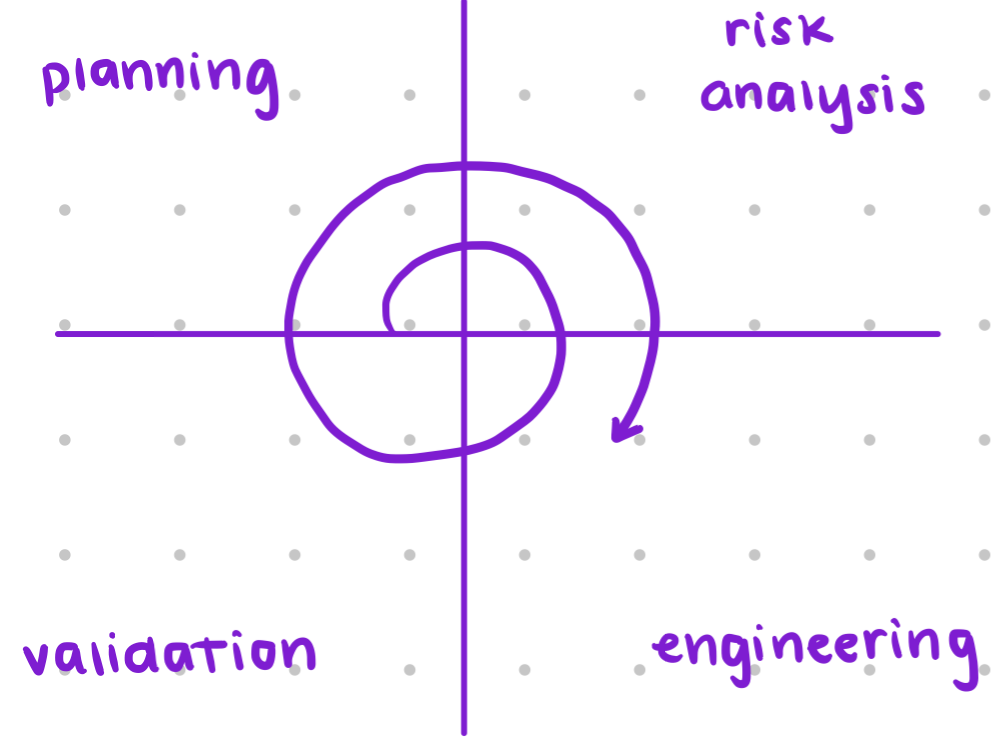 planning
risk
analysis
validation
engineering